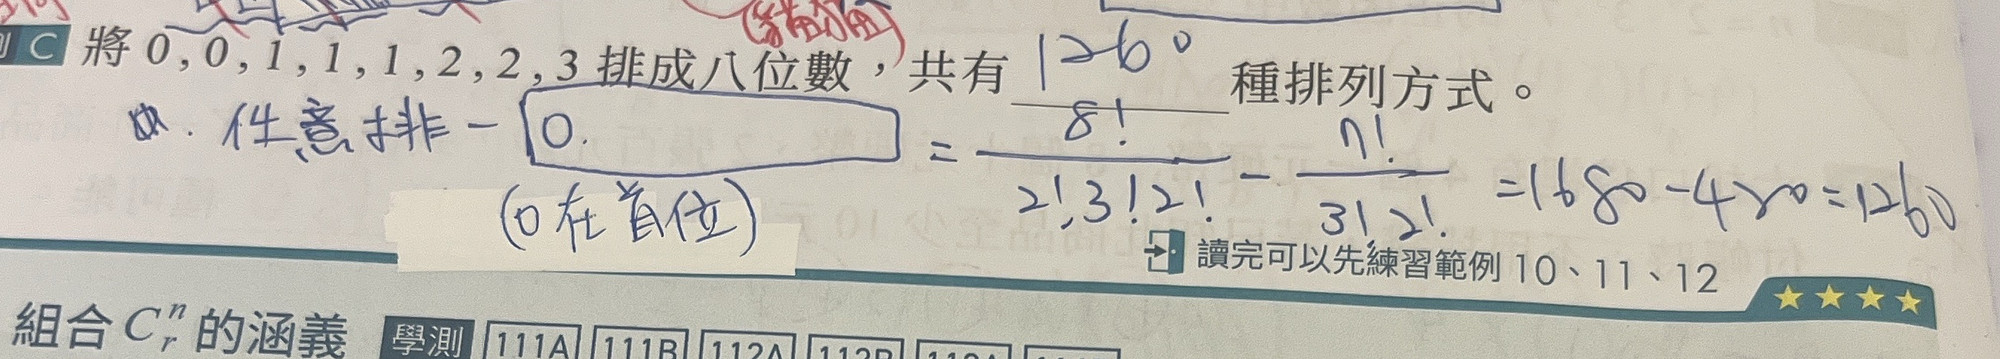 C 將 0, 0, 1, 1, 1, 2, 2, 3 排成八位數，共有 1260 種排列方式。
任意排 - 0. = 8! / 2!3!2! - 7! / 3!2! = 1680 - 420 = 1260
(0在首位)
讀完可以先練習範例 10、11、12
組合 C^n_r 的涵義 學測 111A 111B 112A
★★★★